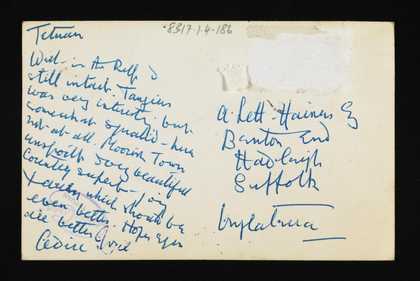 8317.1.4.186
Tetuan
Well - in the Riff &
still intact. Tangiers
was very interesting but
somewhat squalid - here
not at all. Moorish Town
unspoilt & very beautiful
Country superb - going
which should be
even better. Hope eyes
are better. Love
Cedric
A. Lett-Haines Esq
Benton End
Hadleigh
Suffolk
Inglaterra